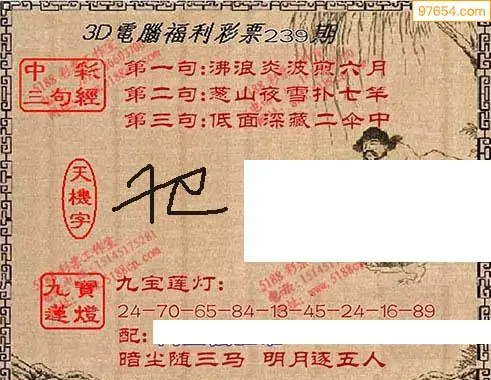 97654.com
3D電腦福利彩票239期
中彩
三句經
第一句:沸浪炎波煎六月
第二句:葱山夜雪扑七年
第三句:低面深藏二伞中
天機字
九寶
蓮燈
九宝莲灯:
24-70-65-84-13-45-24-16-89
配:
暗尘随三马 明月逐五人